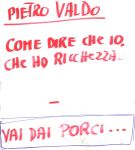 PIETRO VALDO
COME DIRE CHE IO,
CHE HO RICCHEZZA...
–
VAI DAI PORCI...